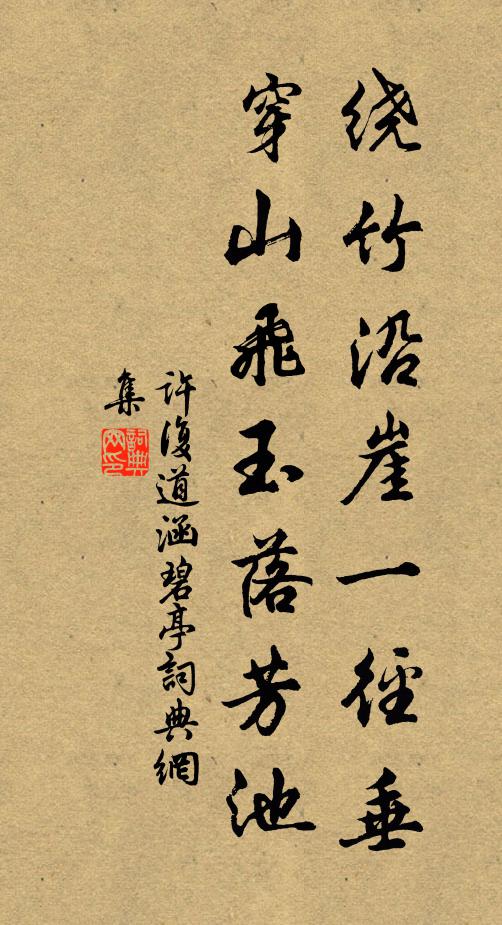 绕竹沿崖一径垂
穿山飛玉落芳池
许復道涵碧亭詞典網
集
詞典網印